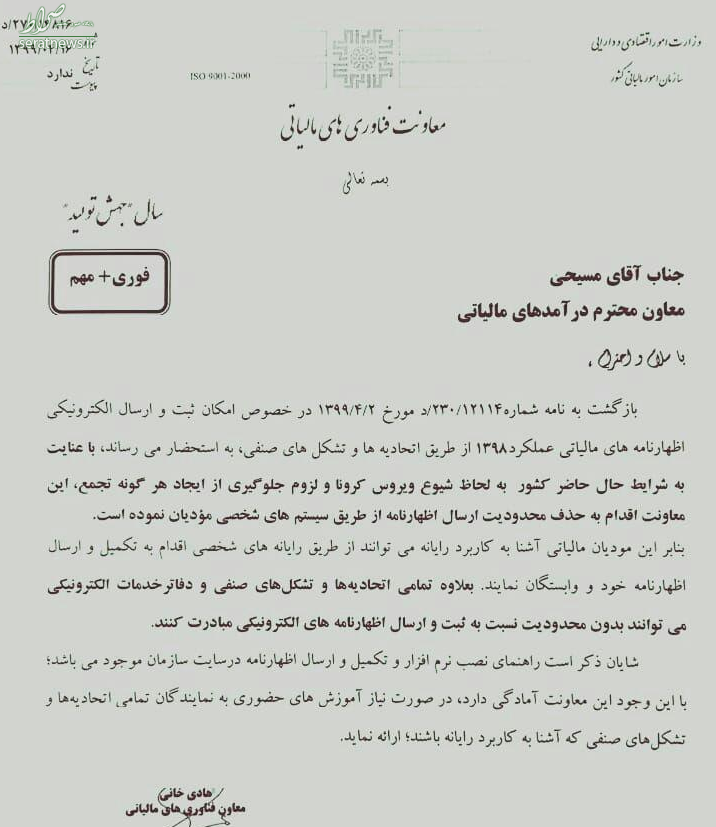 وزارت امور اقتصادی و دارایی
سازمان امور مالیاتی کشور
صراط
seratnews.ir
تاریخ
پیوست ندارد
ISO 9001-2000
معاونت فناوری های مالیاتی
بسمه تعالی
سال "جهش تولید"
فوری+ مهم
جناب آقای مسیحی
معاون محترم درآمدهای مالیاتی
با سلام و احترام ،
بازگشت به نامه شماره۲۳۰/۱۲۱۱۴/د مورخ ۱۳۹۹/۴/۲ در خصوص امکان ثبت و ارسال الکترونیکی
اظهارنامه های مالیاتی عملکرد۱۳۹۸ از طریق اتحادیه ها و تشکل های صنفی، به استحضار می رساند، با عنایت
به شرایط حال حاضر کشور به لحاظ شیوع ویروس کرونا و لزوم جلوگیری از ایجاد هر گونه تجمع، این
معاونت اقدام به حذف محدودیت ارسال اظهارنامه از طریق سیستم های شخصی مؤدیان نموده است.
بنابر این مودیان مالیاتی آشنا به کاربرد رایانه می توانند از طریق رایانه های شخصی اقدام به تکمیل و ارسال
اظهارنامه خود و وابستگان نمایند. بعلاوه تمامی اتحادیه‌ها و تشکل‌های صنفی و دفاترخدمات الکترونیکی
می توانند بدون محدودیت نسبت به ثبت و ارسال اظهارنامه های الکترونیکی مبادرت کنند.
شایان ذکر است راهنمای نصب نرم افزار و تکمیل و ارسال اظهارنامه درسایت سازمان موجود می باشد؛
با این وجود این معاونت آمادگی دارد، در صورت نیاز آموزش های حضوری به نمایندگان تمامی اتحادیه‌ها و
تشکل‌های صنفی که آشنا به کاربرد رایانه باشند؛ ارائه نماید.
هادی خانی
معاون فناوری های مالیاتی